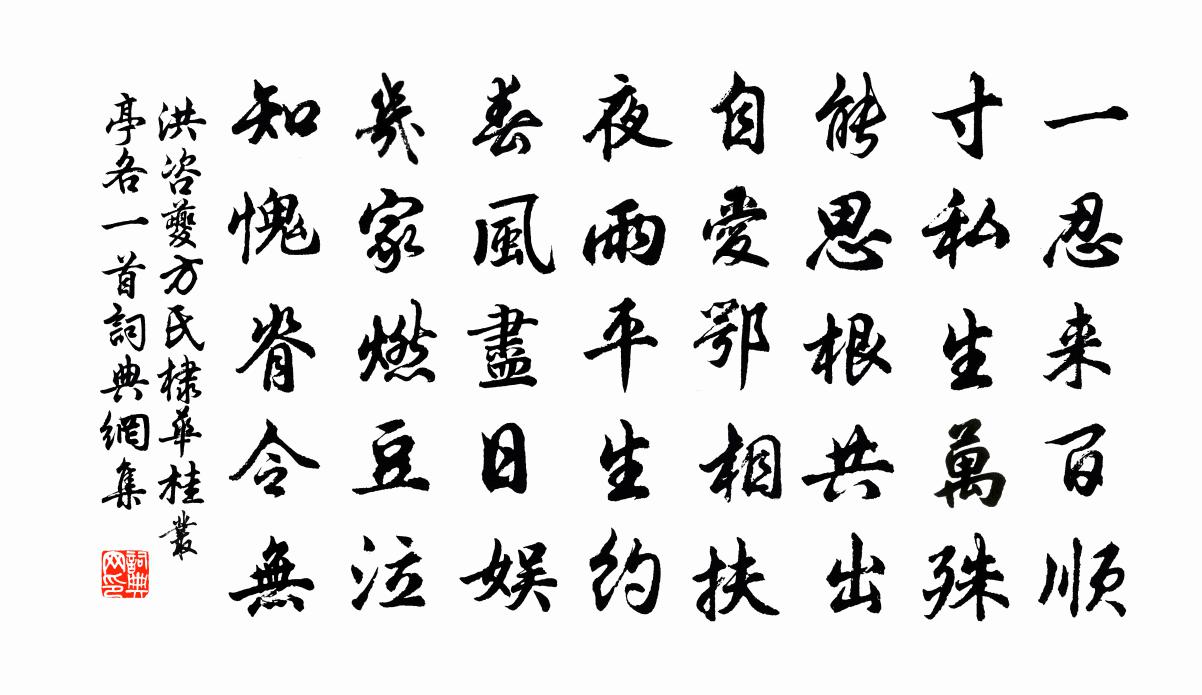 一忍来百順
寸私生萬殊
能思根共出
自愛鄂相扶
夜雨平生約
春風盡日娱
幾家燃豆泣
知愧脊令無
洪咨夔方氏棣華桂叢
亭各一首詞典網集
詞典网印